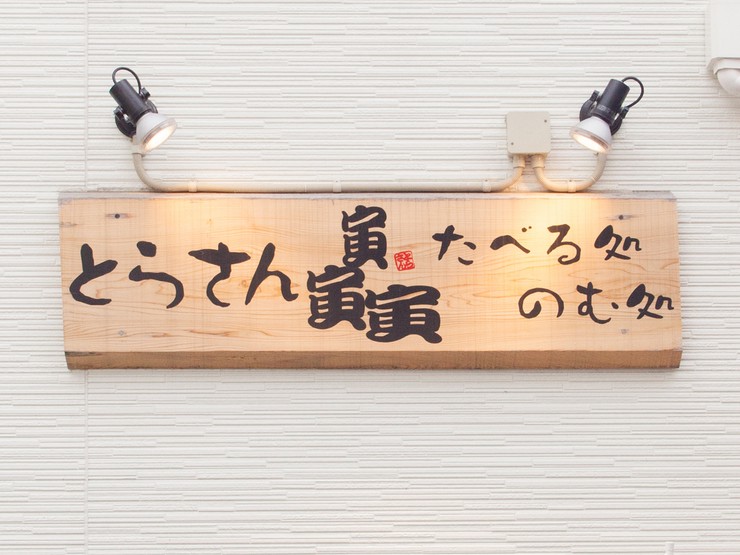 とらさん
寅
寅寅
たべる処
のむ処